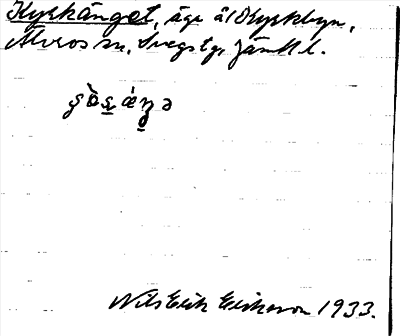 Kyrkänget, äga å! Kyrkbyn,
Älvros sn, Svegs tg, Jämtl l.
Nils Erik Eriksson 1933.